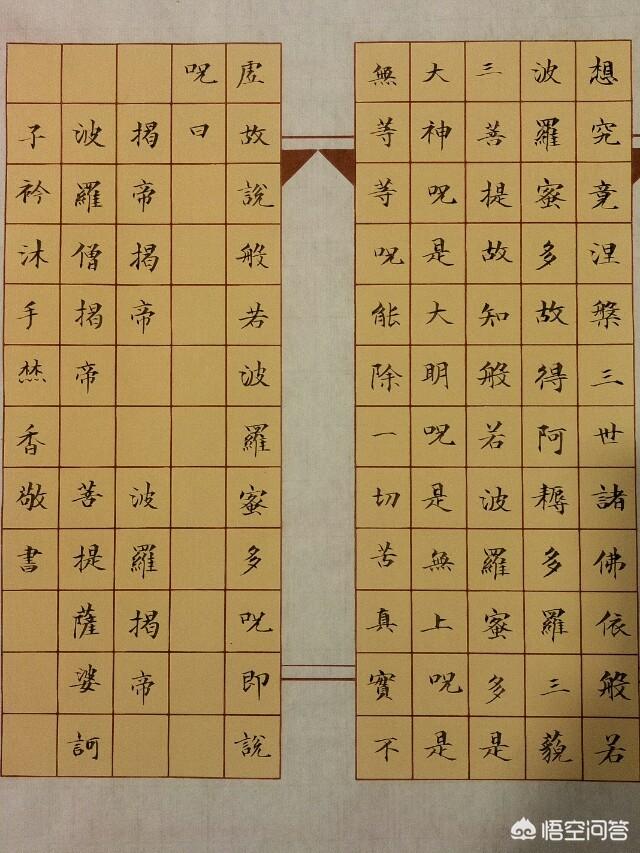 想究竟涅槃三世諸佛依般若
波羅蜜多故得阿耨多羅三藐
三菩提故知般若波羅蜜多是
大神呪是大明呪是無上呪是
無等等呪能除一切苦真實不
虛故說般若波羅蜜多呪即說
呪曰
揭帝揭帝波羅揭帝
波羅僧揭帝菩提薩婆訶
子衿沐手焚香敬書
悟空问答